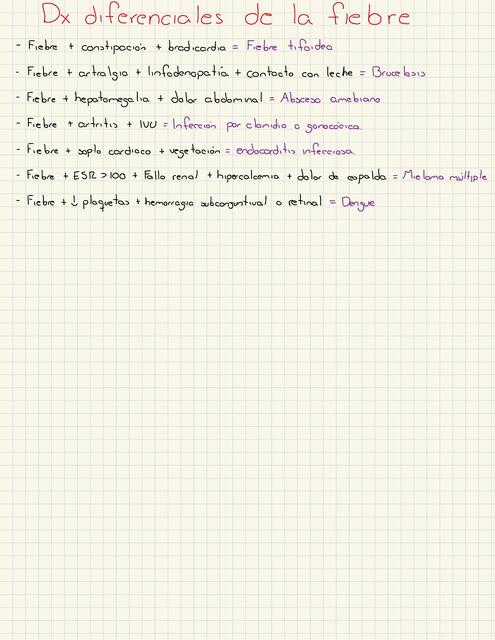 Dx diferenciales de la fiebre
- Fiebre + constipación + bradicardia = Fiebre tifoidea
- Fiebre + artralgia + linfadenopatía + contacto con leche = Brucelosis
- Fiebre + hepatomegalia + dolor abdominal = Absceso amebiano
- Fiebre + artritis + IVU = Infección por clamidia o gonocócica.
- Fiebre + soplo cardiaco + vegetación = endocarditis infecciosa.
- Fiebre + ESR >100 + Fallo renal + hipercalcemia + dolor de espalda = Mieloma múltiple
- Fiebre + ↓ plaquetas + hemorragia subconjuntival o retinal = Dengue